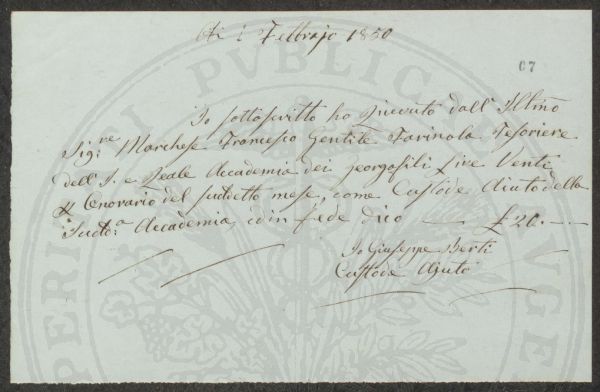 Adi i Febbrajo 1850
67
Io sottoscritto ho ricevuto dall' Illmo
Sig:re Marchese Francesco Gentile Farinola Tesoriere
dell' I. e Reale Accademia dei Georgofili Lire Venti
Onorario del sudetto mese, come Custode Aiuto della
Sudt:a Accademia, ed in fede dico — £ 20. —
Io Giuseppe Berti
Custode Ajuto
PERI PUBLICAE AUGE